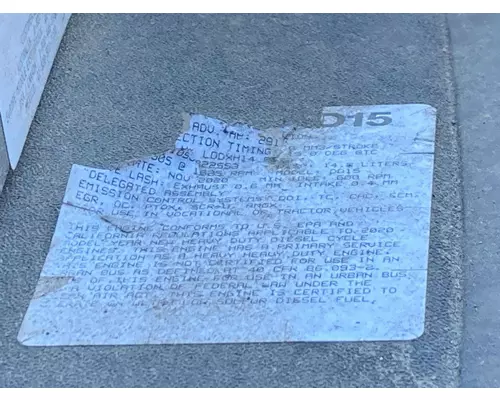 D15
ADV
CTION TIMING
MM3/STROKE
DEG BTC
LDDXH14
14.8 LITERS
DATE: NOV 2020
MIN IDLE: 600 RPM
LASH: EXHAUST 0.6 MM, INTAKE 0.4 MM
DELEGATED ASSEMBLY
EMISSION CONTROL SYSTEMS: DDI, TC, CAC, ECM,
EGR, OCI, PTOX, SCR-U, AMOX
USE IN VOCATIONAL OR TRACTOR VEHICLES
THIS ENGINE CONFORMS TO U.S. EPA AND
CALIFORNIA REGULATIONS APPLICABLE TO 2020
MODEL YEAR NEW HEAVY DUTY DIESEL CYCLE
ENGINES. THIS ENGINE HAS A PRIMARY SERVICE
APPLICATION AS A HEAVY HEAVY DUTY ENGINE.
ENGINE IS NOT CERTIFIED FOR USE IN AN
AN BUS AS DEFINED AT 40 CFR 86.093-2.
OF THIS ENGINE FOR USE IN AN URBAN BUS
VIOLATION OF FEDERAL LAW UNDER THE
AIR ACT. THIS ENGINE IS CERTIFIED TO
ATE ON ULTRA LOW SULFUR DIESEL FUEL.